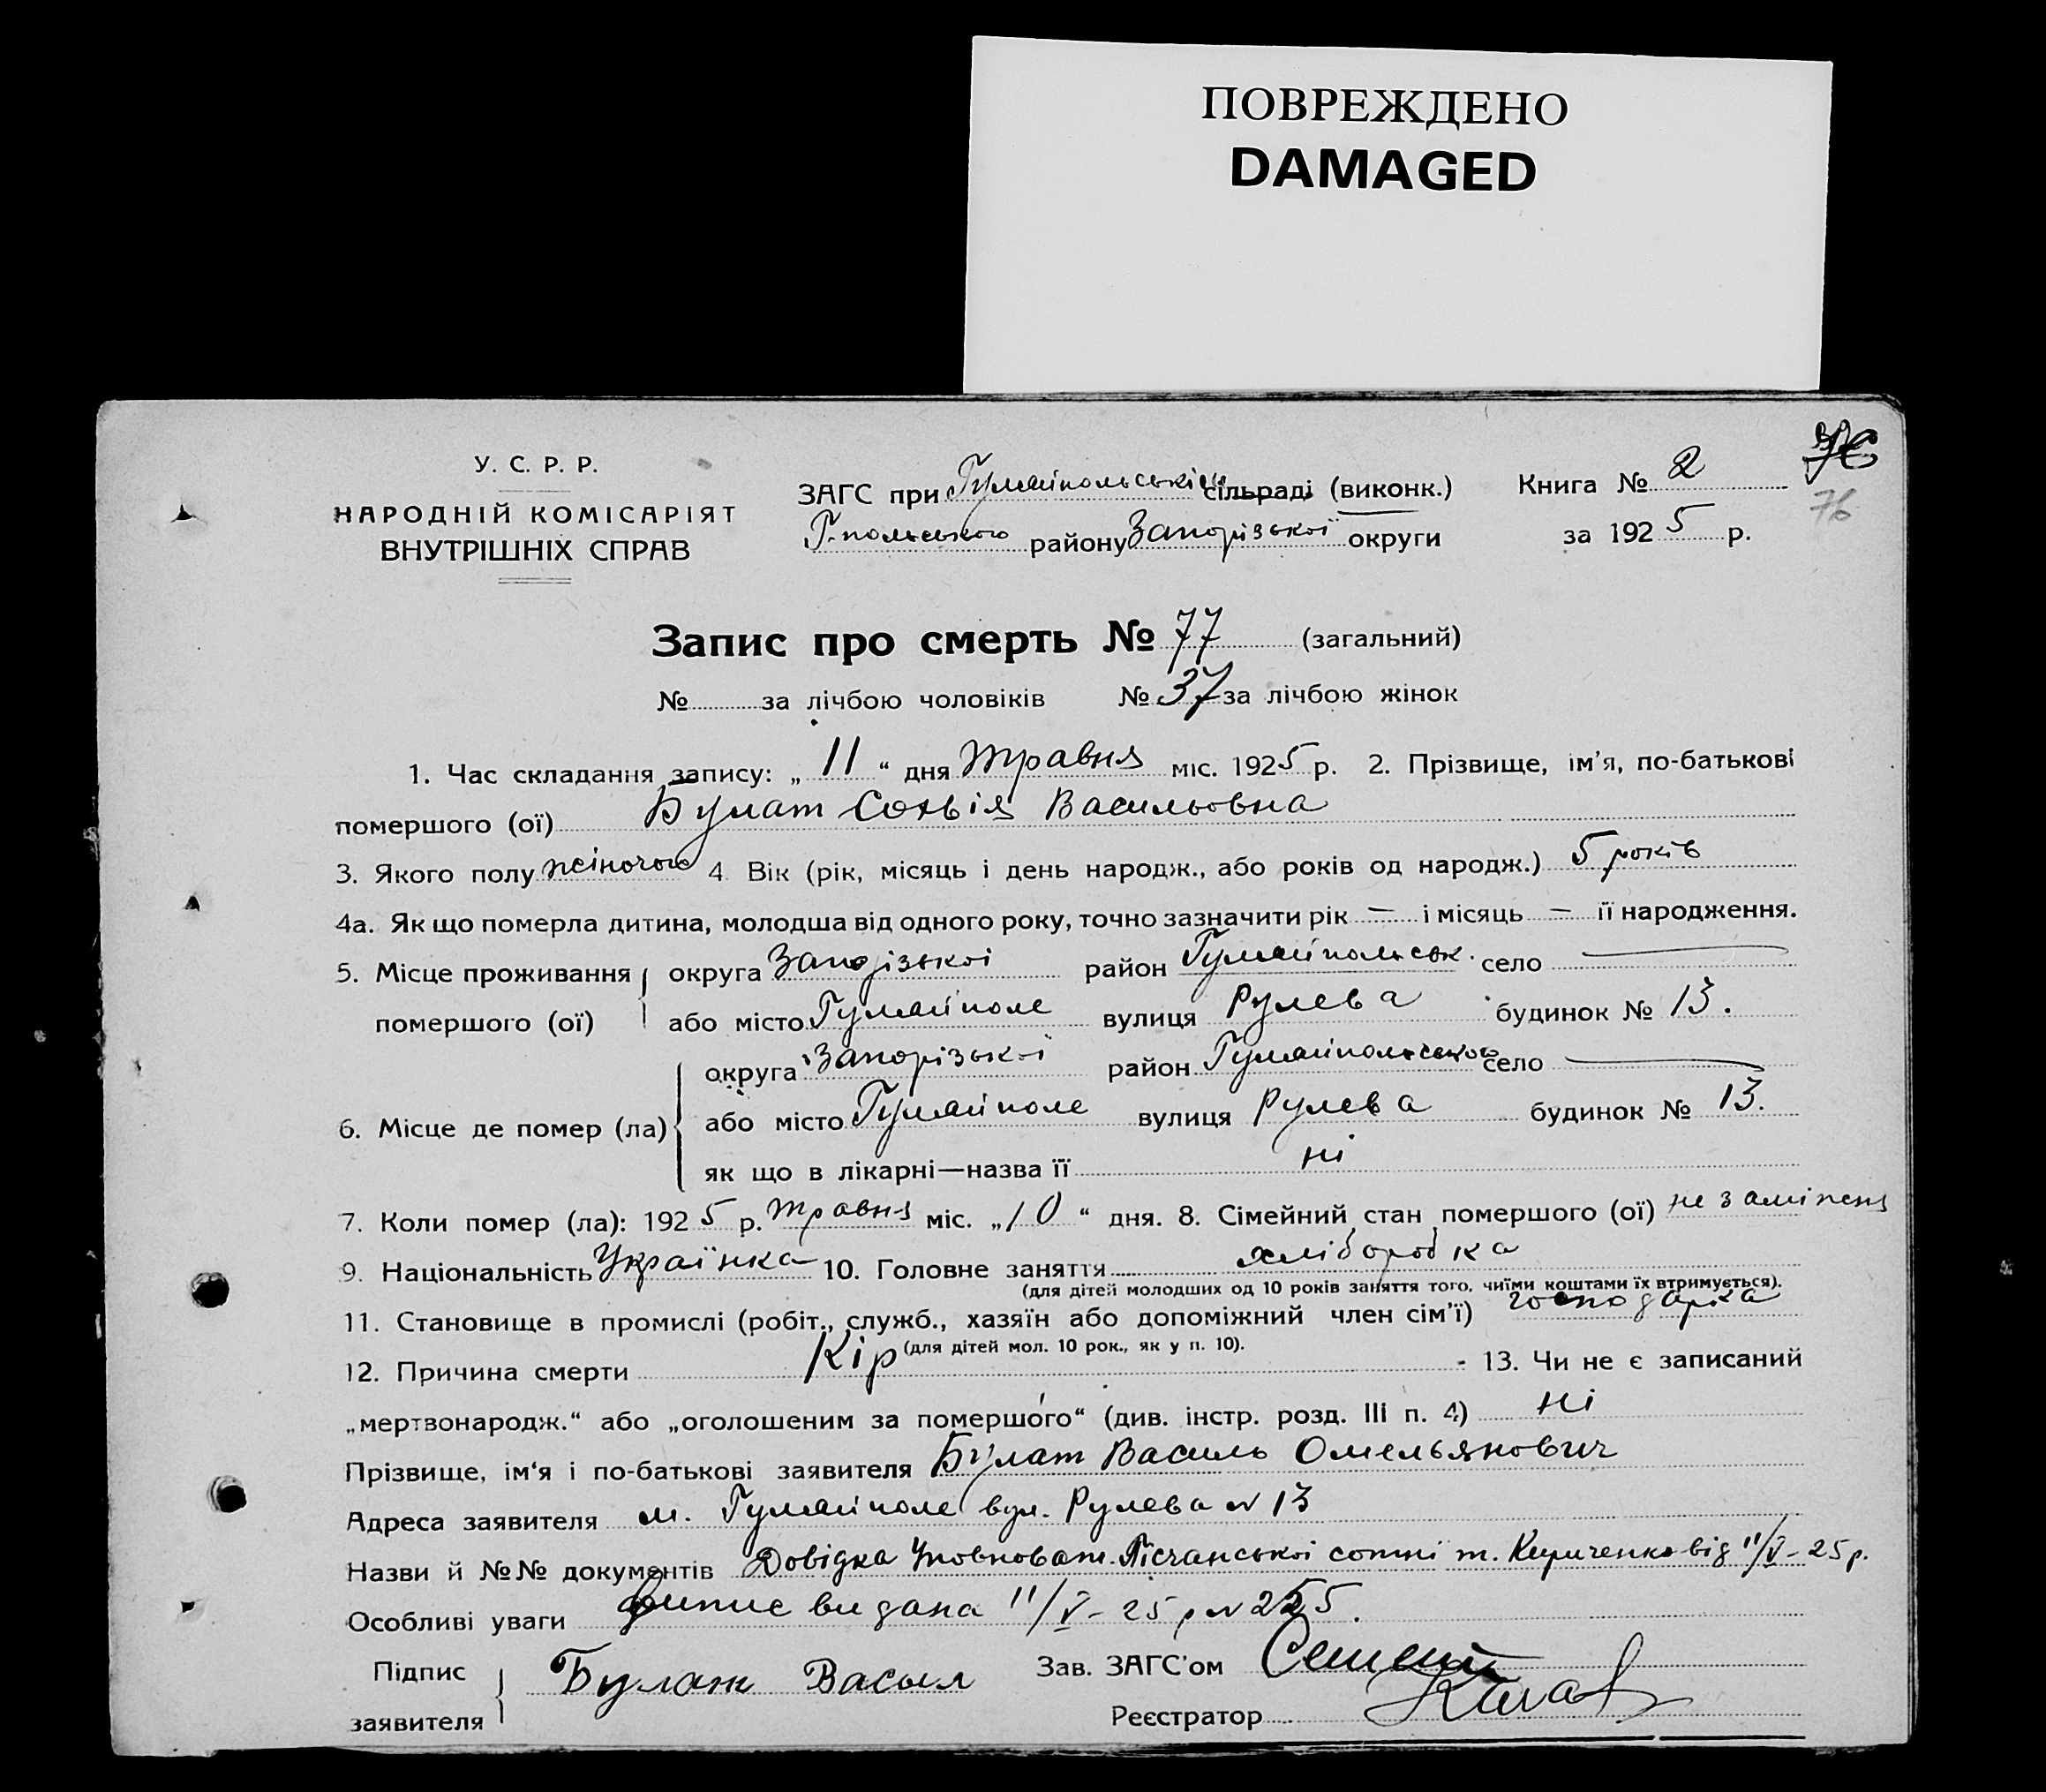 ПОВРЕЖДЕНО
DAMAGED
У. С. Р. Р.
НАРОДНІЙ КОМІСАРІЯТ
ВНУТРІШНІХ СПРАВ
ЗАГС при Гуляйпольськім сільраді (виконк.)
Г.польського району Запорізької округи
Книга № 2
за 1925 р.
76
Запис про смерть № 77 (загальний)
№ за лічбою чоловіків № 37 за лічбою жінок
1. Час складання запису: „ 11 “ дня травня міс. 1925 р. 2. Прізвище, ім'я, по-батькові
помершого (ої) Булат Софія Васильовна
3. Якого полу жіночого 4 Вік (рік, місяць і день народж., або років од народж.) 5 років
4а. Як що померла дитина, молодша від одного року, точно зазначити рік — і місяць — її народження.
5. Місце проживання помершого (ої) округа Запорізької район Гуляйпольськ. село —
або місто Гуляйполе вулиця Рулева будинок № 13.
6. Місце де помер (ла) округа Запорізької район Гуляйпольського село —
або місто Гуляйполе вулиця Рулева будинок № 13.
як що в лікарні—назва її ні
7. Коли помер (ла): 1925 р. травня міс. „10“ дня. 8. Сімейний стан помершого (ої) не заміжня
9. Національність Українка 10. Головне заняття хліборобка
(для дітей молодших од 10 років заняття того, чиїми коштами їх втримується).
11. Становище в промислі (робіт., служб., хазяїн або допоміжний член сім'ї) господарка
(для дітей мол. 10 рок., як у п. 10).
12. Причина смерти Кір 13. Чи не є записаний
„мертвонародж.“ або „оголошеним за помершого“ (див. інстр. розд. III п. 4) ні
Прізвище, ім'я і по-батькові заявителя Булат Василь Омельянович
Адреса заявителя м. Гуляйполе вул. Рулева № 13
Назви й №№ документів Довідка Уповноваж. Пісчанської сотні т. Кириченко від 11/V-25 р.
Особливі уваги Випис видана 11/V-25 р № 255.
Підпис заявителя Булат Васыл
Зав. ЗАГС'ом
Реєстратор